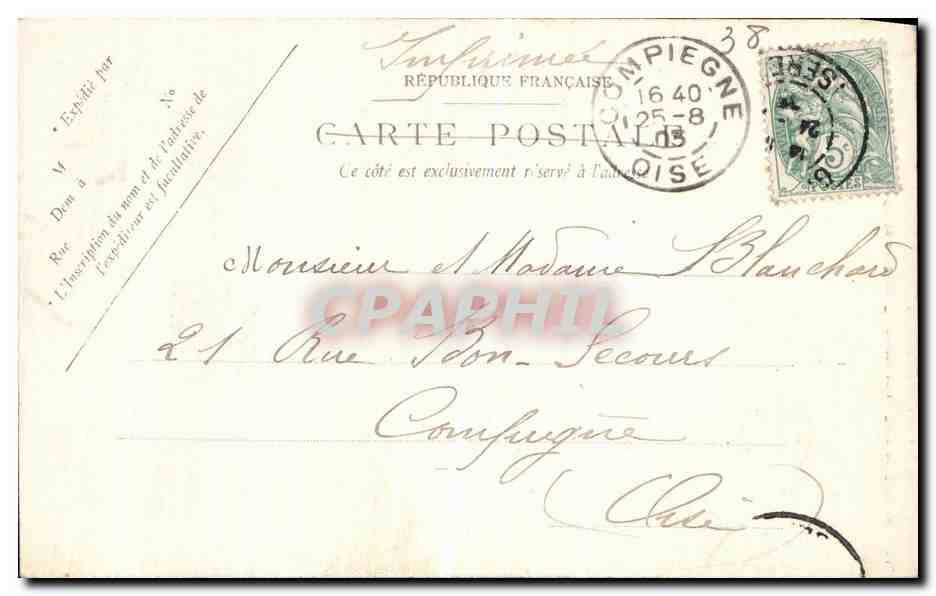 38
Imprimé
RÉPUBLIQUE FRANÇAISE
CARTE POSTALE
Ce côté est exclusivement réservé à l'adresse
COMPIEGNE
16 40
25-8
03
OISE
ISERE
24
5c
POSTES
• Expédié par
M
Dem à
Rue No
• L'Inscription du nom et de l'adresse de
l'expéditeur est facultative.
Monsieur et Madame Blanchard
CPAPHIL
21 Rue Bon-Secours
Compiègne
(Oise)